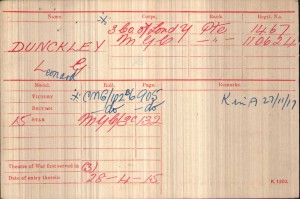 Name. Corps. Rank. Regtl. No.
DUNCKLEY
Leonard G
3/Co. of Lond Y Pte 1467
M.G.C. —"— 110624
Medal. Roll. Page. Remarks.
VICTORY MGC/102B6 905
BRITISH —do— —do—
15 STAR MGC/3C 132
K in A 27/11/17
Theatre of War first served in (3)
Date of entry therein 28-4-15
K. 1380.